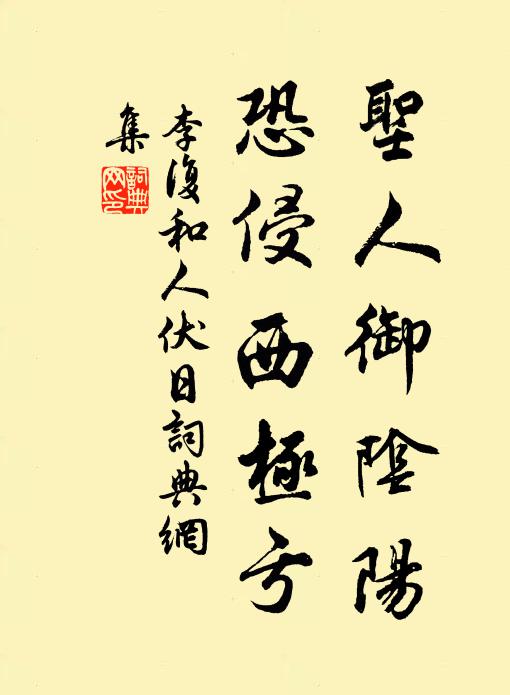 聖人御陰陽
恐侵西極亏
李復和人伏日詞典網
集
詞典网印